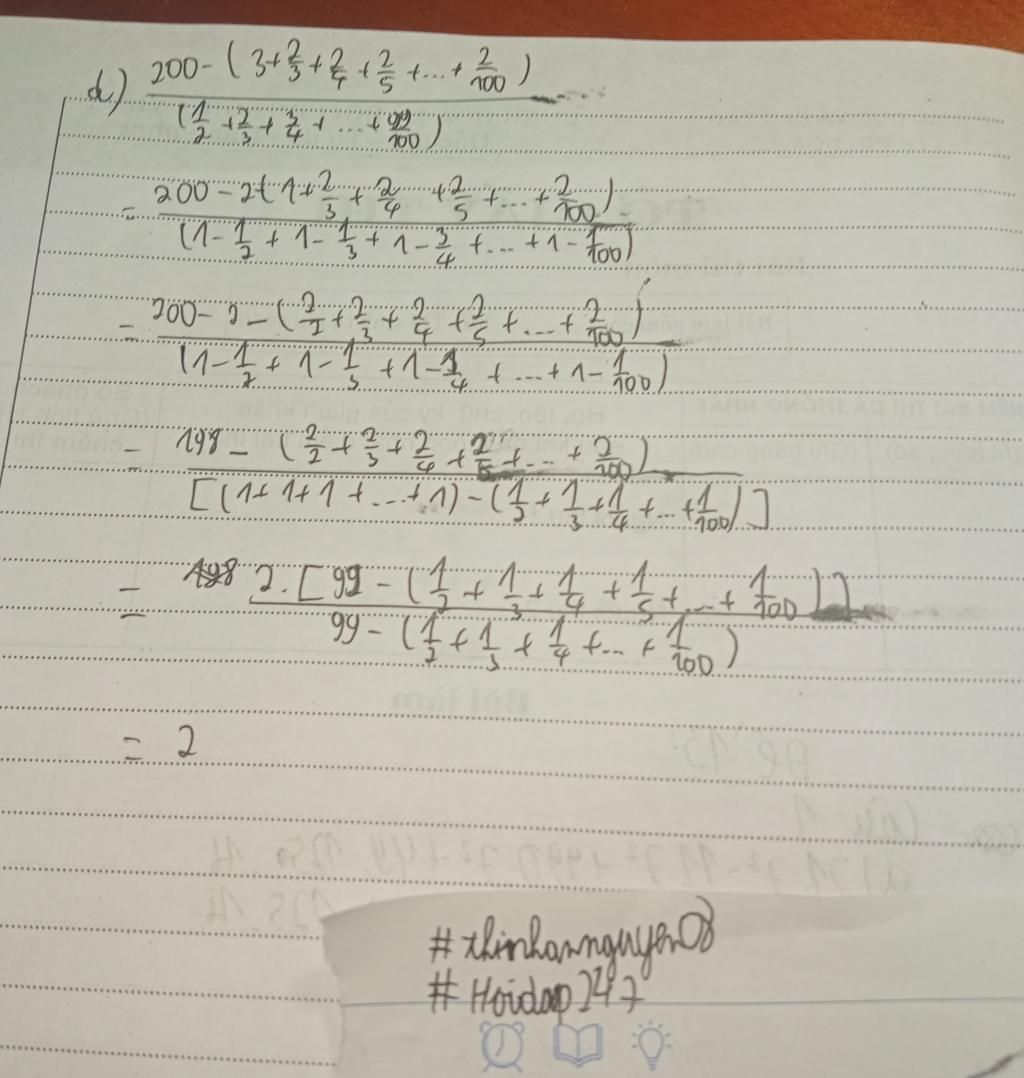 d) 200 - ( 3 + 2/3 + 2/4 + 2/5 + ... + 2/100 )
( 1/2 + 2/3 + 3/4 + ... + 99/100 )
= 200 - 2 ( 1 + 2/3 + 2/4 + 2/5 + ... + 2/100 )
( 1 - 1/2 + 1 - 1/3 + 1 - 3/4 + ... + 1 - 1/100 )
= 200 - 2 - ( 2/2 + 2/3 + 2/4 + 2/5 + ... + 2/100 )
( 1 - 1/2 + 1 - 1/3 + 1 - 1/4 + ... + 1 - 1/100 )
= 198 - ( 2/2 + 2/3 + 2/4 + 2/5 + ... + 2/100 )
[ ( 1 + 1 + 1 + ... + 1 ) - ( 1/2 + 1/3 + 1/4 + ... + 1/100 ) ]
= 2 . [ 99 - ( 1/2 + 1/3 + 1/4 + 1/5 + ... + 1/100 ) ]
99 - ( 1/2 + 1/3 + 1/4 + ... + 1/100 )
= 2
#thinhannguyen08
#Hoidap247